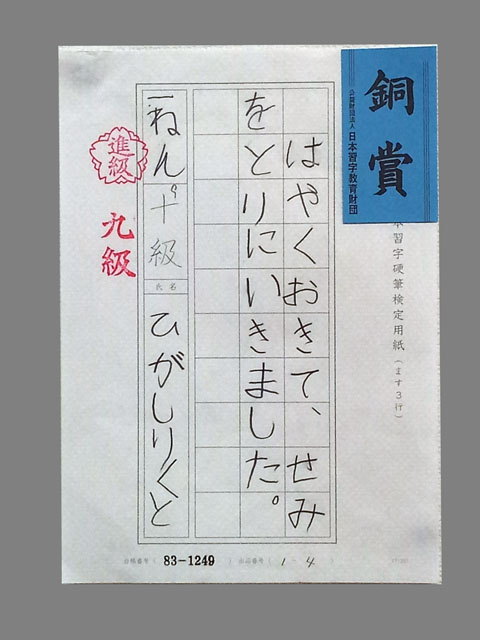 銅賞
公益財団法人 日本習字教育財団
本習字硬筆検定用紙(ます3行)
はやくおきて、せみ
をとりにいきました。
一ねん 十級
氏名
ひがしりくと
進級
九級
合格番号( 83-1249 ) 出品番号( 1-4 )